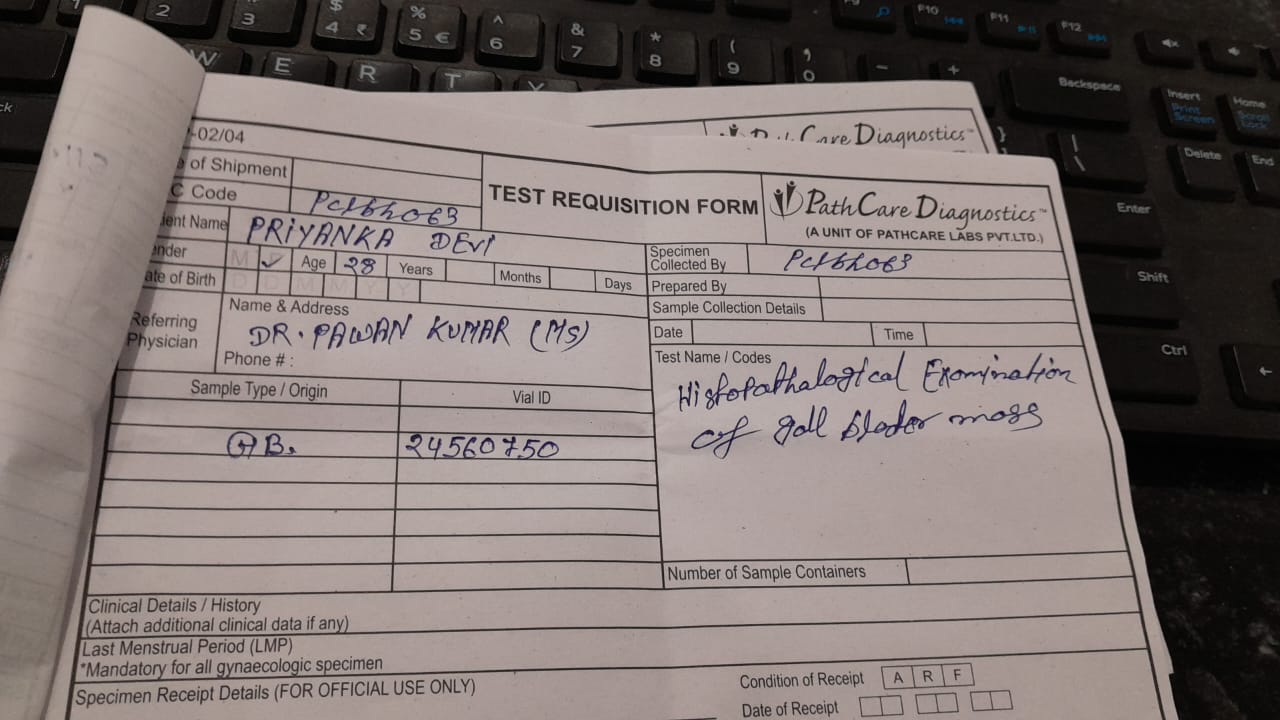 -02/04
of Shipment
C Code
TEST REQUISITION FORM
PathCare Diagnostics™
(A UNIT OF PATHCARE LABS PVT.LTD.)
ient Name PRIYANKA DEVI
nder M Age 28 Years Months Days
Specimen Collected By
ate of Birth D D M M Y Y
Prepared By
Sample Collection Details
Referring Physician
Name & Address
DR. PAWAN KUMAR (MS)
Phone # :
Date Time
Test Name / Codes
Histopathalogical Examination
of gall blader mass
Sample Type / Origin Vial ID
GB. 24560750
Number of Sample Containers
Clinical Details / History
(Attach additional clinical data if any)
Last Menstrual Period (LMP)
*Mandatory for all gynaecologic specimen
Specimen Receipt Details (FOR OFFICIAL USE ONLY)
Condition of Receipt A R F
Date of Receipt